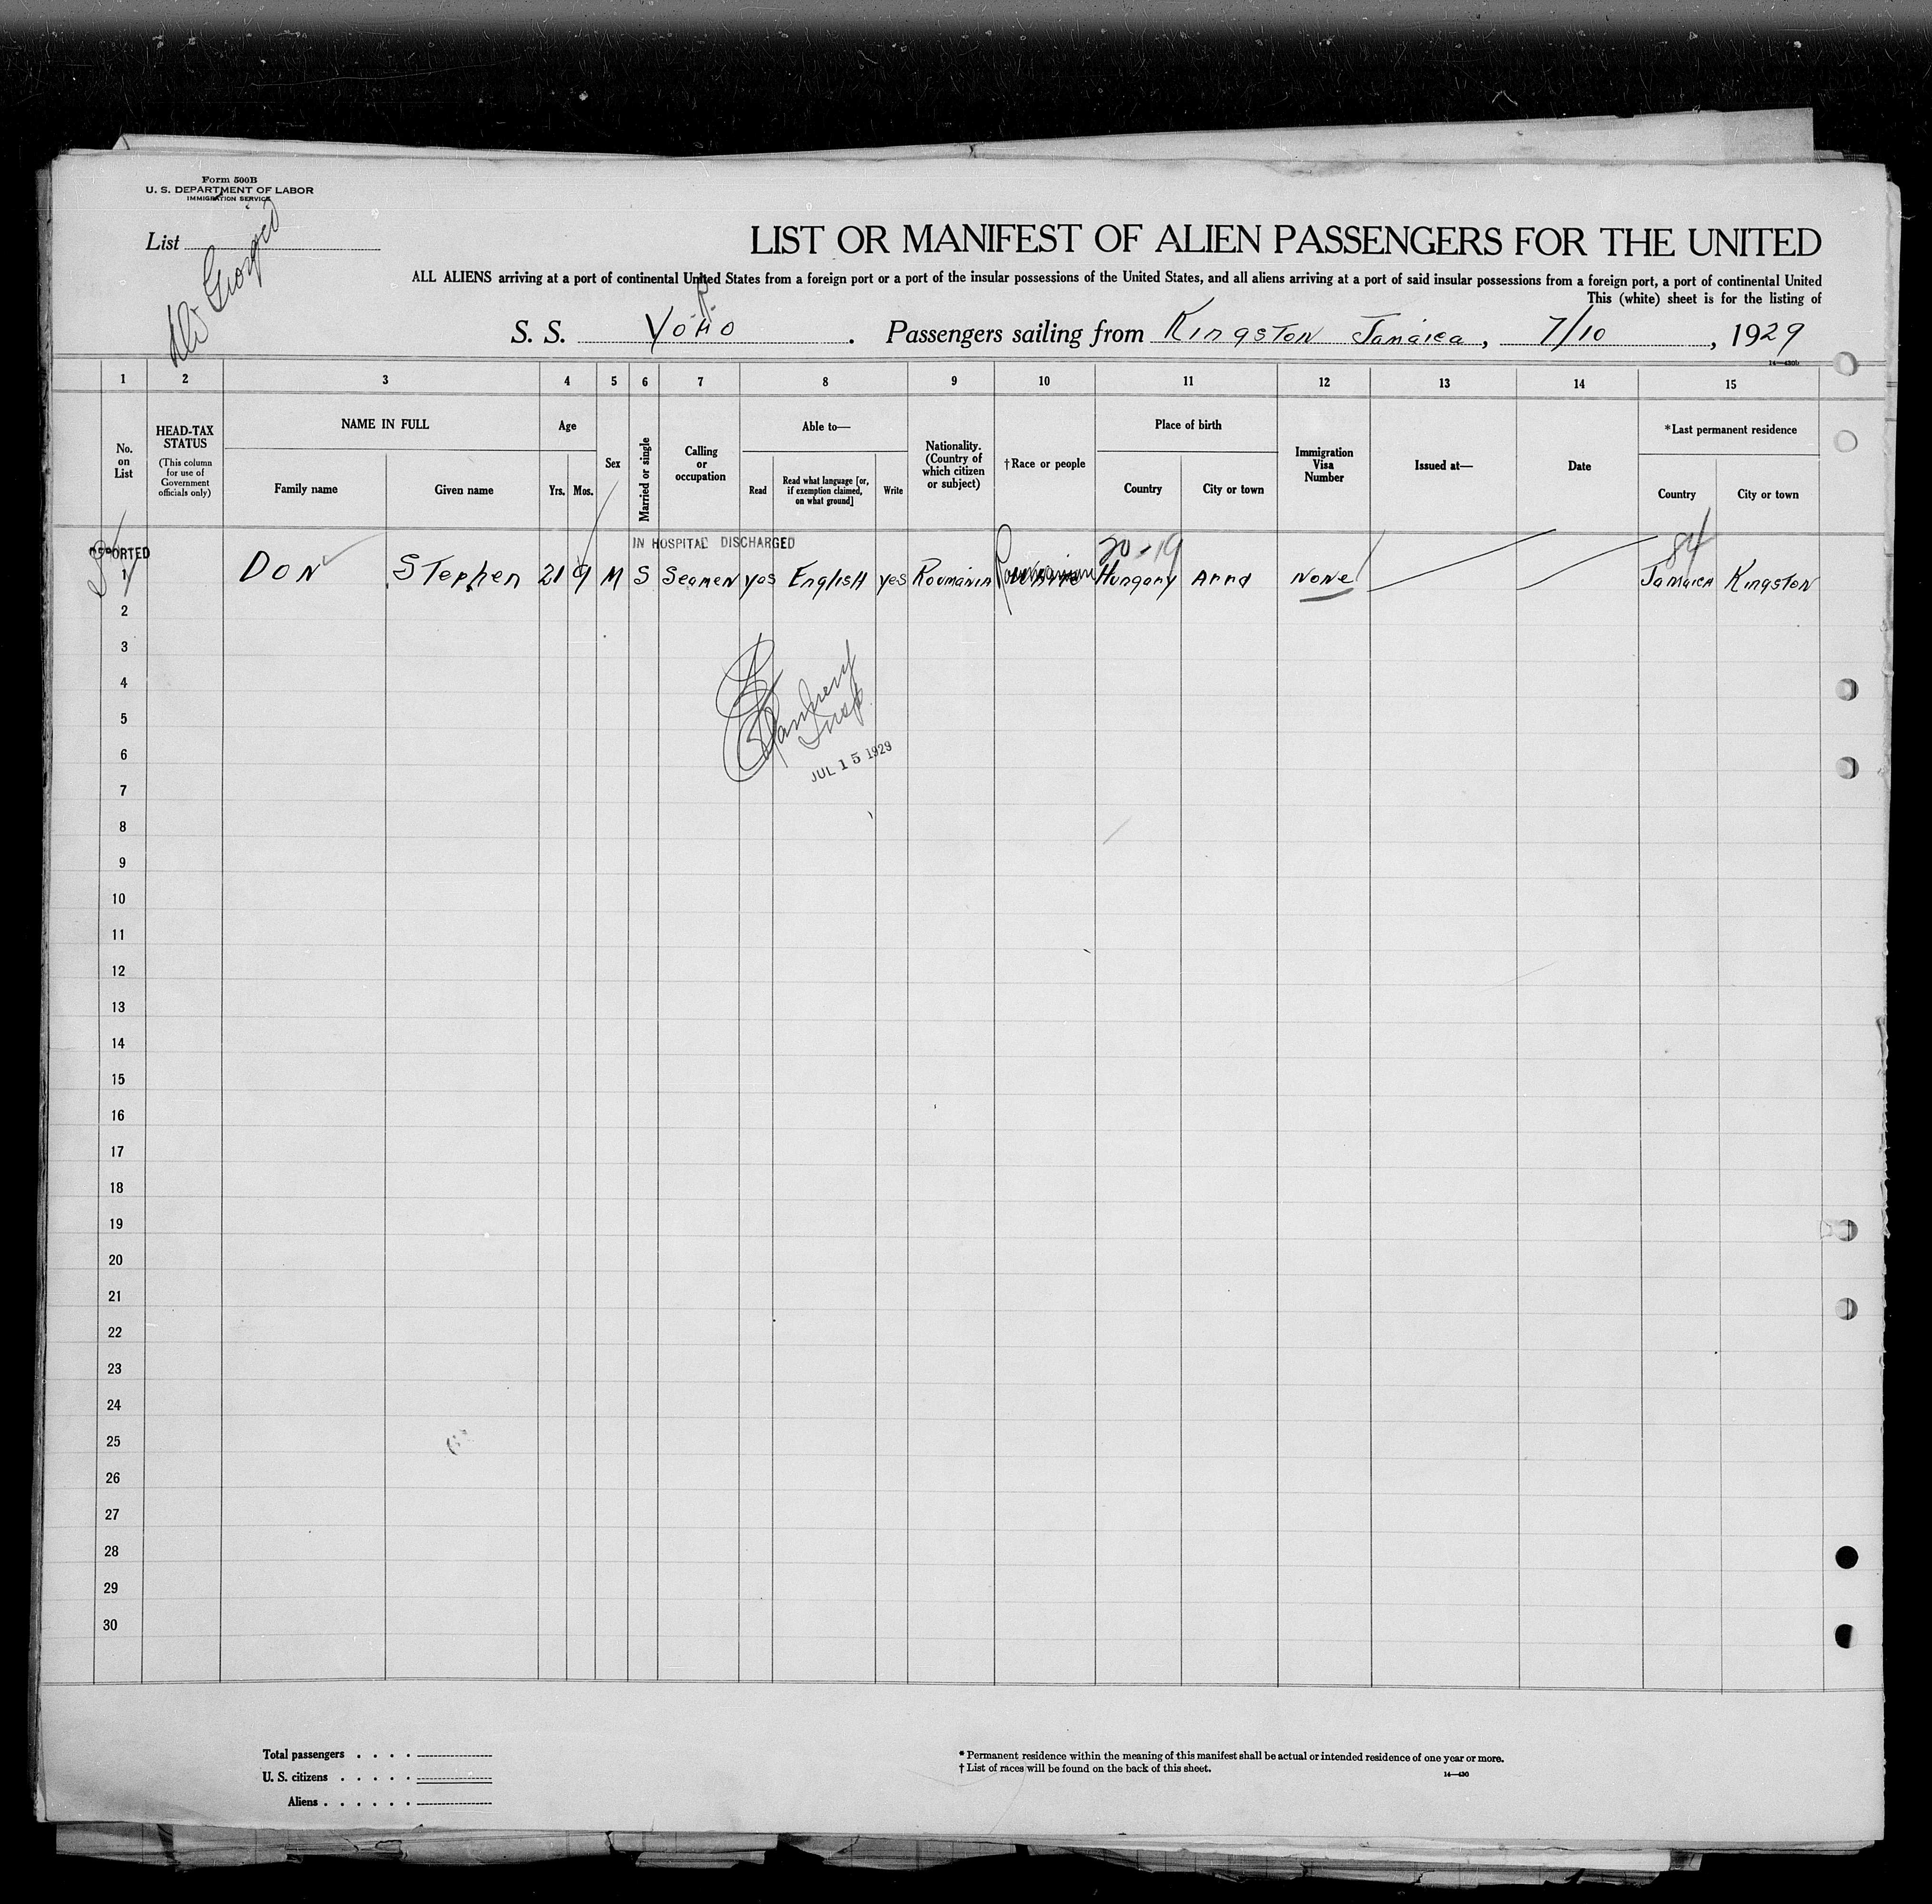 Form 500B
U. S. DEPARTMENT OF LABOR
IMMIGRATION SERVICE
List
LIST OR MANIFEST OF ALIEN PASSENGERS FOR THE UNITED
ALL ALIENS arriving at a port of continental United States from a foreign port or a port of the insular possessions of the United States, and all aliens arriving at a port of said insular possessions from a foreign port, a port of continental United
This (white) sheet is for the listing of
S. S. YORO . Passengers sailing from Kingston Jamaica, 7/10, 1929
14—430b
1 2 3 4 5 6 7 8 9 10 11 12 13 14 15
No. on List
HEAD-TAX STATUS
(This column for use of Government officials only)
NAME IN FULL
Family name
Given name
Age
Yrs.
Mos.
Sex
Married or single
Calling or occupation
Able to—
Read
Read what language [or, if exemption claimed, on what ground]
Write
Nationality. (Country of which citizen or subject)
†Race or people
Place of birth
Country
City or town
Immigration Visa Number
Issued at—
Date
*Last permanent residence
Country
City or town
IN HOSPITAL DISCHARGED
20-19
84
DEPORTED
1 DON Stephen 21 9 M S Seamen yes English yes Roumania Roumanian Hungary Arrd None Jamaica Kingston
2
3
4
5
6
Insp
JUL 15 1929
7
8
9
10
11
12
13
14
15
16
17
18
19
20
21
22
23
24
25
26
27
28
29
30
Total passengers . . . .
U. S. citizens . . . . .
Aliens . . . . . .
* Permanent residence within the meaning of this manifest shall be actual or intended residence of one year or more.
† List of races will be found on the back of this sheet.
14—430